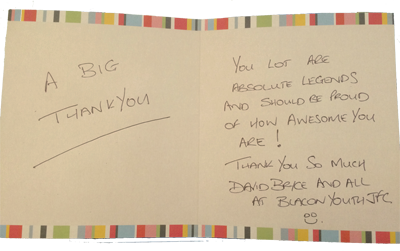 A BIG
THANKYOU
YOU LOT ARE
ABSOLUTE LEGENDS
AND SHOULD BE PROUD
OF HOW AWESOME YOU
ARE!
THANK YOU SO MUCH
DAVID BRYCE AND ALL
AT BLACON YOUTH JFC.